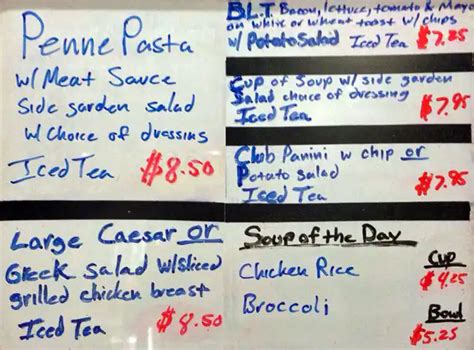 Penne Pasta
w/ Meat Sauce
Side garden salad
w/ Choice of dressing
Iced Tea $8.50
Large Caesar or
Greek Salad w/Sliced
grilled chicken breast
Iced Tea $8.50
B.L.T Bacon, lettuce, tomato & Mayo
on white or wheat toast w/ chips
w/ Potato Salad Iced Tea $7.25
Cup of Soup w/ side garden
Salad choice of dressing
Iced Tea $7.95
Club Panini w chip or
Potato Salad
Iced Tea $7.95
Soup of the Day
Cup
Chicken Rice $4.25
Broccoli Bowl
$5.25